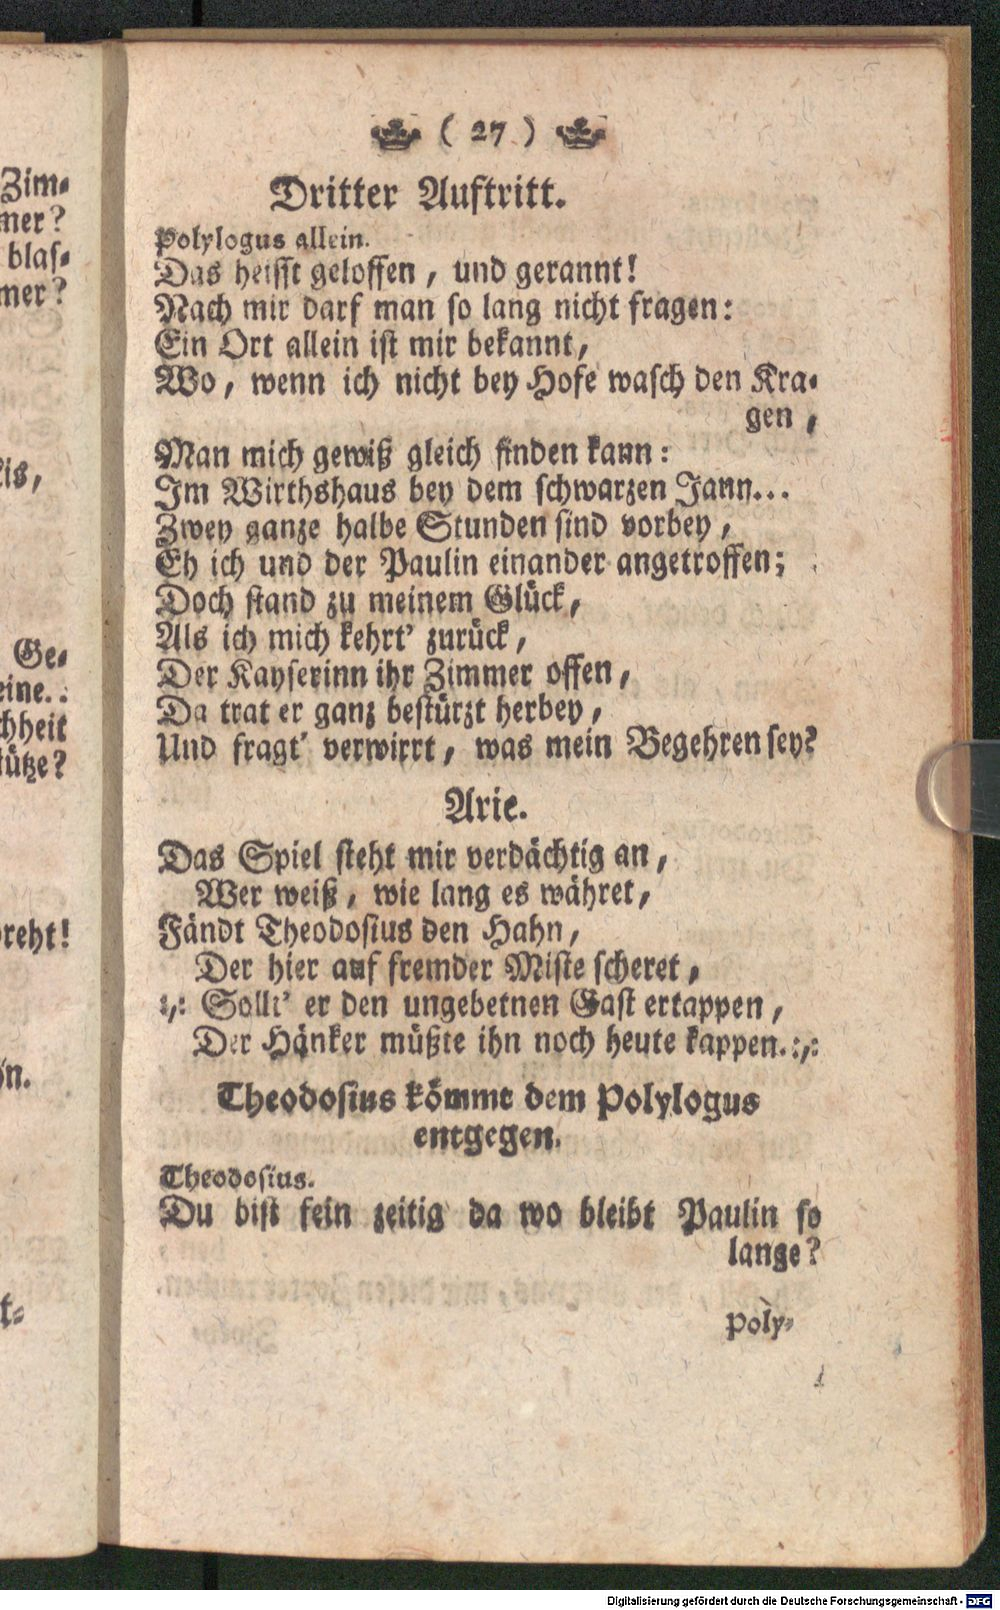 Zim-
mer?
blas-
mer?
lis,
Ge-
eine..
chheit
tütze?
dreht!
t-
( 27 )
Dritter Auftritt.
Polylogus allein.
Das heisst geloffen, und gerannt!
Nach mir darf man so lang nicht fragen:
Ein Ort allein ist mir bekannt,
Wo, wenn ich nicht bey Hofe wasch den Kra-
gen,
Man mich gewiß gleich finden kann:
Im Wirthshaus bey dem schwarzen Jann...
Zwey ganze halbe Stunden sind vorbey,
Eh ich und der Paulin einander angetroffen;
Doch stand zu meinem Glück,
Als ich mich kehrt' zurück,
Der Kayserinn ihr Zimmer offen,
Da trat er ganz bestürzt herbey,
Und fragt' verwirrt, was mein Begehren sey?
Arie.
Das Spiel steht mir verdächtig an,
Wer weiß, wie lang es währet,
Fändt Theodosius den Hahn,
Der hier auf fremder Miste scheret,
:,: Sollt' er den ungebetnen Gast ertappen,
Der Hänker müßte ihn noch heute kappen.:,:
Theodosius kömmt dem Polylogus
entgegen.
Theodosius.
Du bist fein zeitig da wo bleibt Paulin so
lange?
Poly-
Digitalisierung gefördert durch die Deutsche Forschungsgemeinschaft - DFG